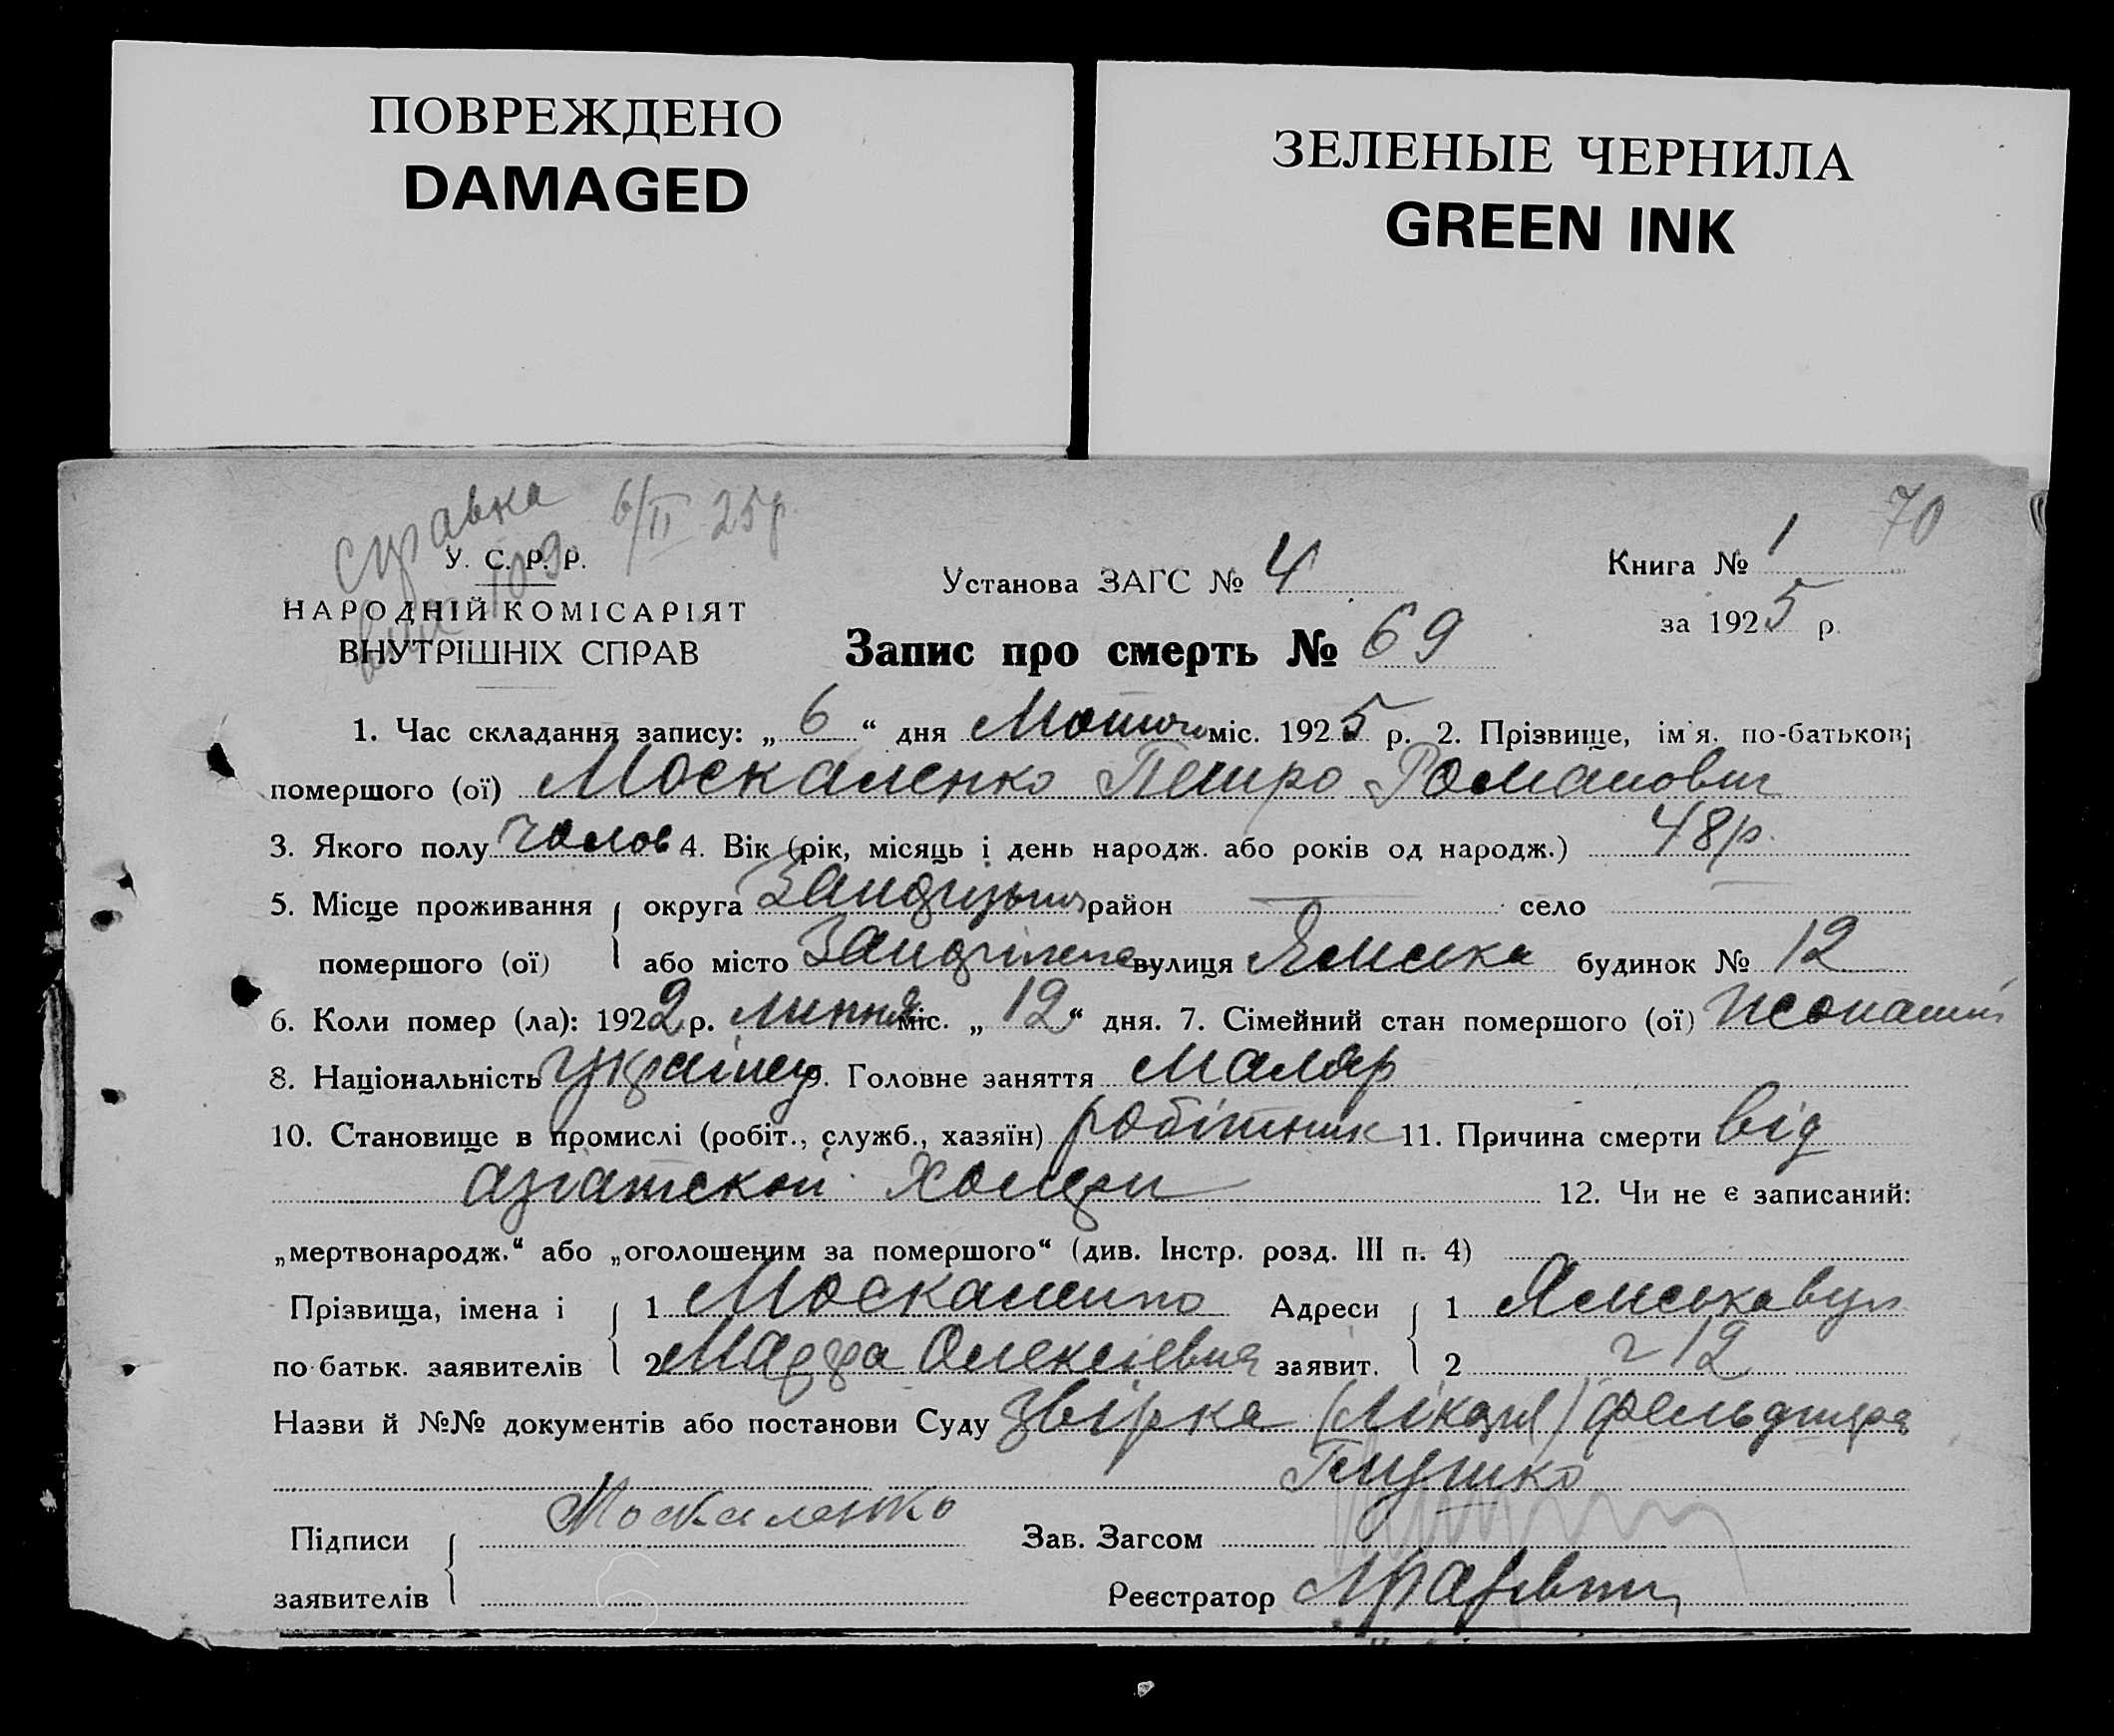 ПОВРЕЖДЕНО
DAMAGED
ЗЕЛЕНЫЕ ЧЕРНИЛА
GREEN INK
Справка 6/II 25р.
70
У. С. Р. Р.
НАРОДНІЙ КОМІСАРІЯТ
ВНУТРІШНІХ СПРАВ
Установа ЗАГС № 4
Книга № 1
за 1925 р.
Запис про смерть № 69
1. Час складання запису: „ 6 “ дня Лютого міс. 1925 р. 2. Прізвище, ім'я, по-батькові
померш​ого (ої) Москаленко Петро Романович
3. Якого полу чолов 4. Вік (рік, місяць і день народж. або років од народж.) 48 р.
5. Місце проживання округа район — село
померш​ого (ої) або місто вулиця Ямська будинок № 12
6. Коли помер (ла): 1922 р. липня міс. „ 12 “ дня. 7. Сімейний стан померш​ого (ої) жонатий
8. Національність українец 9. Головне заняття маляр
10. Становище в промислі (робіт., служб., хазяїн) робітник 11. Причина смерти від
азіатской холери 12. Чи не є записаний:
„мертвонародж.“ або „оголошеним за померш​ого“ (див. Інстр. розд. III п. 4)
Прізвища, імена і 1 Москаленко Адреси 1 Ямська вул
по батьк. заявителів 2 Марфа Олексіевна заявит. 2 12
Назви й №№ документів або постанови Суду звірка (лікаря) фельдшера
Глушко
Підписи Москаленко Зав. Загсом
заявителів Реєстратор